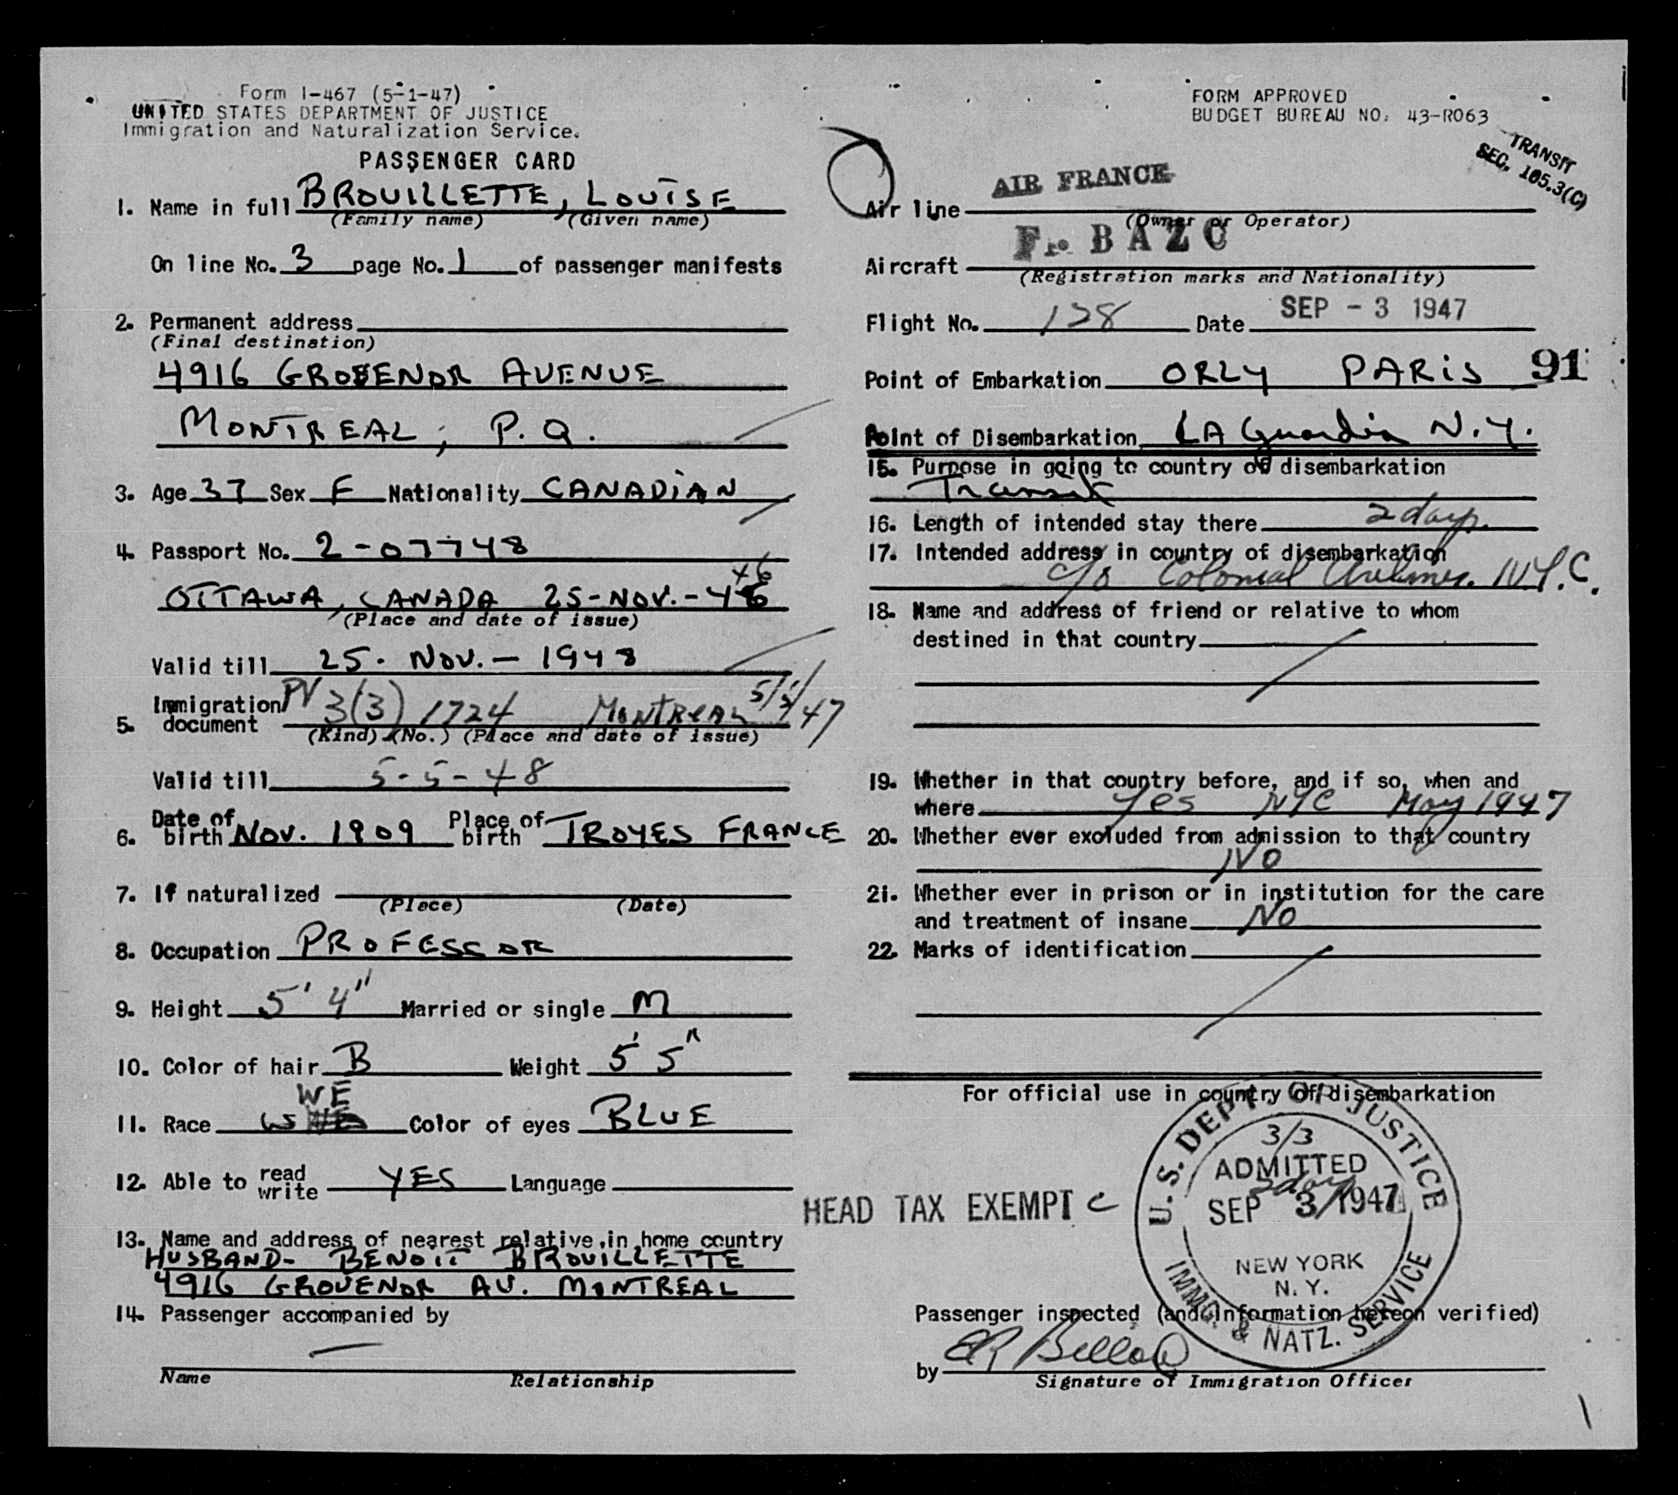 Form I-467 (5-1-47)
UNITED STATES DEPARTMENT OF JUSTICE
Immigration and Naturalization Service.
PASSENGER CARD
1. Name in full BROUILLETTE, LOUISE
(Family name) (Given name)
On line No. 3 page No. 1 of passenger manifests
2. Permanent address
(Final destination)
4916 GROVENOR AVENUE
MONTREAL, P.Q.
3. Age 37 Sex F Nationality CANADIAN
4. Passport No. 2-07748
46
OTTAWA, CANADA 25-NOV.-46
(Place and date of issue)
Valid till 25. NOV.- 1948
5. Immigration document PV 3(3) 1724 MONTREAL 5/5/47
(Kind) (No.) (Place and date of issue)
Valid till 5-5-48
6. Date of birth NOV. 1909 Place of birth TROYES FRANCE
7. If naturalized
(Place) (Date)
8. Occupation PROFESSOR
9. Height 5' 4" Married or single M
10. Color of hair B Weight 5' 5"
WE
11. Race Color of eyes BLUE
12. Able to read write YES Language
13. Name and address of nearest relative in home country
HUSBAND- BENOIT BROUILLETTE
4916 GROVENOR AV. MONTREAL
14. Passenger accompanied by
Name Relationship
FORM APPROVED
BUDGET BUREAU NO. 43-R063
TRANSIT
SEC. 105.3(C)
Air line AIR FRANCE
(Owner or Operator)
Aircraft F. BAZC
(Registration marks and Nationality)
Flight No. 128 Date SEP - 3 1947
Point of Embarkation ORLY PARIS 91
Point of Disembarkation LA Guardia N.Y.
15. Purpose in going to country of disembarkation
Transit
16. Length of intended stay there 2 days.
17. Intended address in country of disembarkation
c/o Colonial Airlines. N.Y.C.
18. Name and address of friend or relative to whom
destined in that country
19. Whether in that country before, and if so, when and
where Yes NYC May 1947
20. Whether ever excluded from admission to that country
NO
21. Whether ever in prison or in institution for the care
and treatment of insane No
22. Marks of identification
For official use in country of disembarkation
HEAD TAX EXEMPT C
U.S. DEPT. OF JUSTICE
3/3
ADMITTED
2 days
SEP 3 1947
NEW YORK
N.Y.
IMMG. & NATZ. SERVICE
Passenger inspected (and information hereon verified)
by
Signature of Immigration Officer